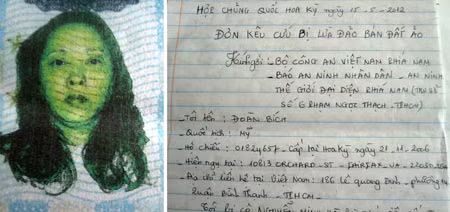 HỘE CHỦNG QUỐC HOA KỲ ngày 15-5-2012
ĐƠN KÊU CỨU BỊ LỪA ĐẢO BAN ĐẤT ẢO
Kính gởi: - BỘ CÔNG AN VIỆT NAM PHIA NAM
- BÁO AN NINH NHÂN DÂN - AN NINH
THẾ GIỚI ĐẠI DIỆN PHIA NAM (TRU SỞ
SỐ 6 PHẠM NGỌC THẠCH - TPHCM
- Tôi tên: ĐOÀN BÍCH
- Quốc tịch: MỸ
- Hộ chiếu: 018245657 - Cấp tại Hoa Kỳ ngày 21-11-2006
- Hiện ngụ tại: 10813 ORCHARD - ST - FAIRFAX - VA - 22030
- Địa chỉ liên hệ tại Việt Nam: 186 Lê Quang Định - phường
Quận Bình Thạnh - TPHCM